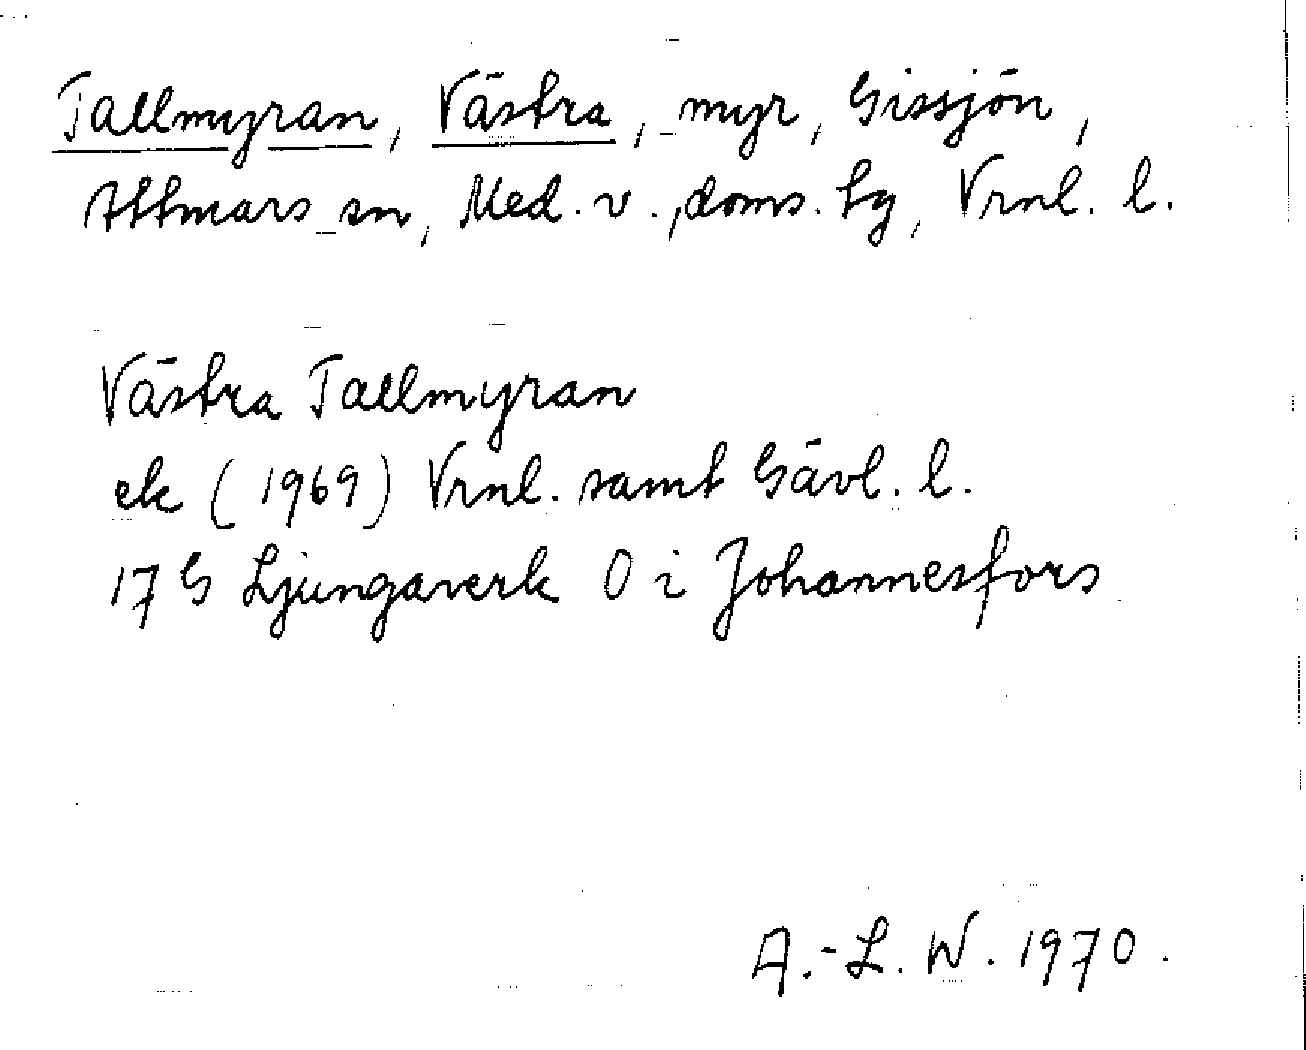 Tallmyran, Västra, myr, Gissjön,
Attmars sn, Med. v., doms. lg, Vrnl. l.
Västra Tallmyran
ek (1969) Vrnl. samt Gävl. l.
17 G Ljungaverk O i Johannesfors
A.-L. W. 1970.